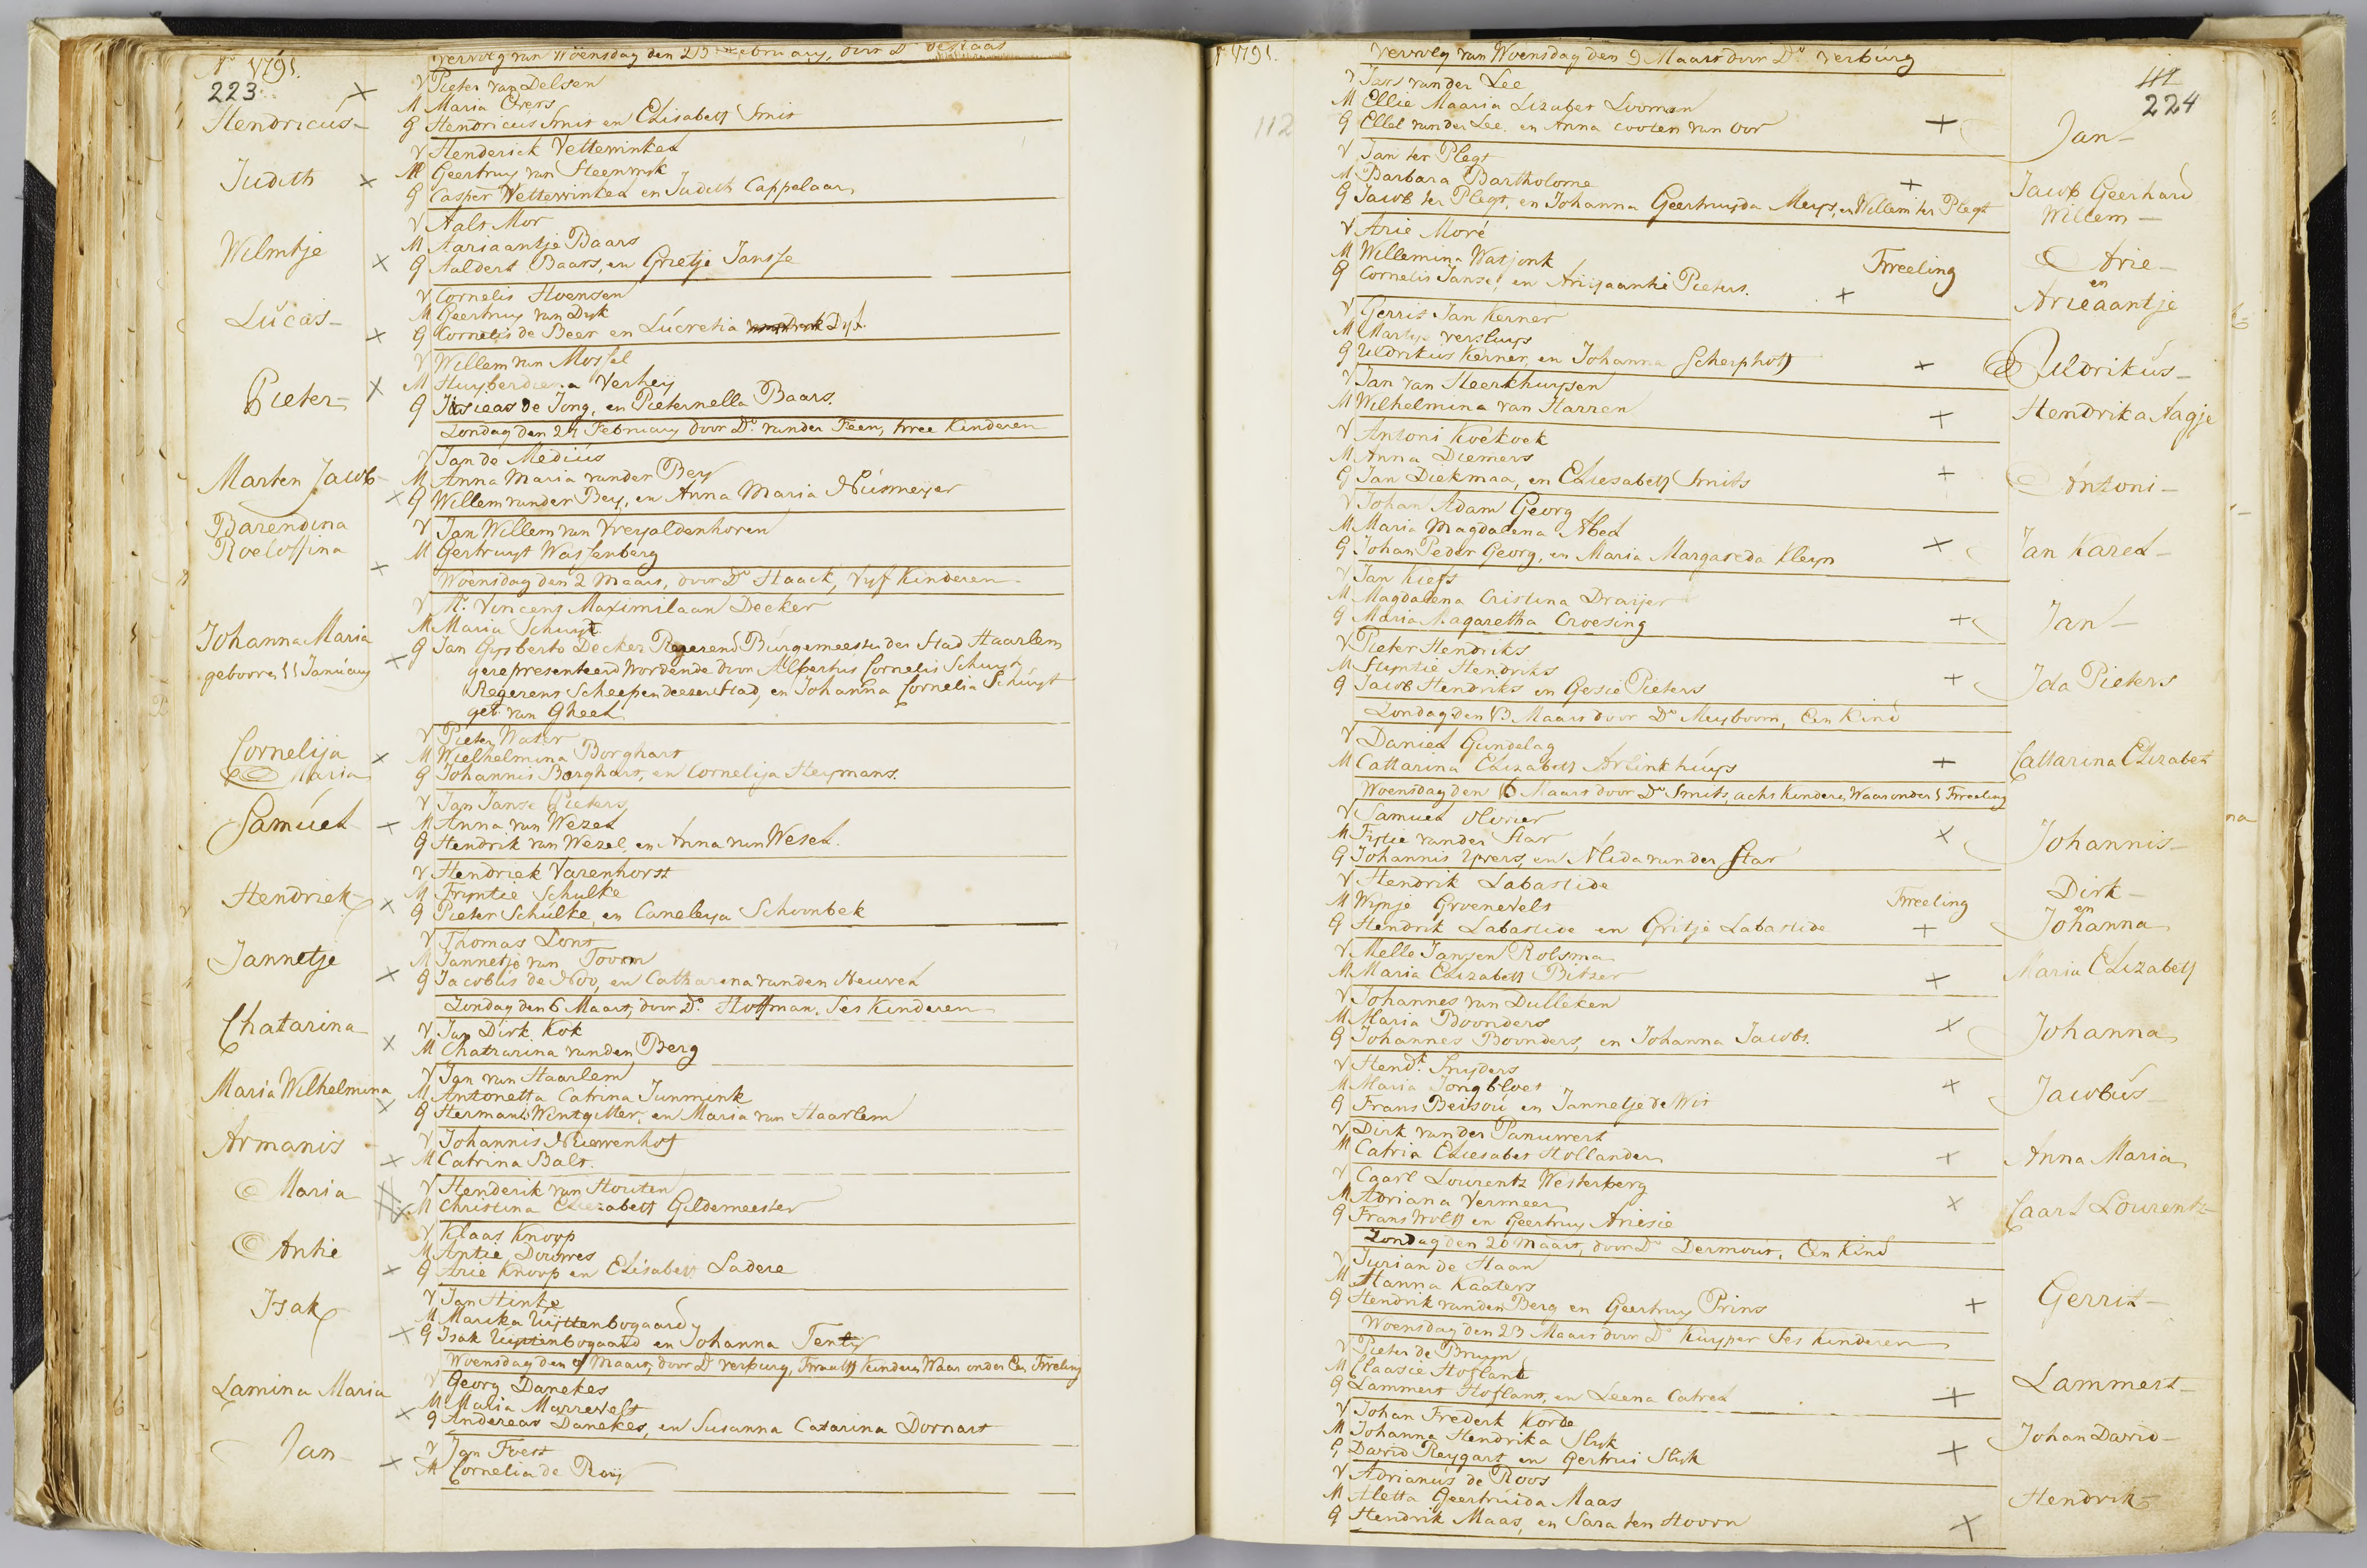 Aº 1791.
223
Vervolg van Woensdag den 23 February, door Dº
Hendricus
V Pieter van Delsen
M Maria Evers
G Hendricus Smit en Elisabeth Smit
Judith
V Henderick Vettewinkel
M Geertruy van Steenwyk
G Casper Wettewinkel en Judith Cappelaar
Wilmtje
V Aalt Mor
M Aariaantje Baars
G Aaldert Baars, en Grietje Jansse
Lucas
V Cornelis Hoensen
M Geertruy van Dyk
G Cornelis de Beer en Lucretia Dyk
Pieter
V Willem van Mossel
M Huyberdiena Verheij
G de Jong, en Pieternella Baars.
Zondag den 27 February door Dº van der Feen, twee Kinderen
Marten Jacob
V Jan de Medius
M Anna Maria van der Bey
G Willem van der Bey, en Anna Maria Niesmeyer
Barendina
Roeloffina
V Jan Willem van Vreyaldenhoven
M Gertruyt Wassenberg
Woensdag den 2 Maart, door Dº Haack, Vyf Kinderen
Johanna Maria
gebooren 11 January
V Mr. Vincent Maximilaan Decker
M Maria Schuyt
G Jan Gysberto Decker Regerend Burgemeester der Stad Haarlem
gerepresenteerd wordende door Albertus Cornelis Schuyt
Regerent Scheepen deezer Stad, en Johanna Cornelia Schuyt
geb. van Gheel
Cornelija
Maria
V Pieter Water
M Wielhelmina Borghart
G Johannis Borghart, en Cornelija Heymans.
Samuel
V Jan Janse Pieters
M Anna van Wezel
G Hendrik van Wezel, en Anna van Wesel.
Hendriek
V Hendriek Varenhorst
M Fryntie Schulke
G Pieter Schulke, en Caneleya Schoonbek
Jannetje
V Thomas Lont
M Jannetje van Toorn
G Jacobus de Noo, en Catharena van den Heuvel
Zondag den 6 Maart, door Dº Hoffman, Ses Kinderen
Chatarina
V Jan Dirk Kok
M Chatrarina van den Berg
Maria Wilhelmina
V Jan van Haarlem
M Antonetta Catrina Junmink
G Hermanus Wintgitter, en Maria van Haarlem
Armanis
V Johannis Niewenhof
M Catrina Balt.
Maria
V Henderik van Houten
M Christina Eliezabeth Gildemeester
Antie
V Klaas Knoop
M Antie Douwes
G Arie Knoop en Elisabeth Ladere
Isak
V Jan Hinke
M Marika Uijttenbogaard
G Isak Uijttenbogaard en Johanna
Woensdag den 9 Maart, door Dº Verburg, Twaalf Kinderen Waar onder Een Tweeling
Lamina Maria
V Georg Danekes
M Malia Marrevelt
G Andereas Danekes, en Susanna Catarina Dornart
Jan
V Jan Foest
M Cornelia de Rooy
Aº 1791.
112
Vervolg van Woensdag den 9 Maart door Dº Verburg
224
V Jars van der Lee
M Ellie Maaria Lizabet Looman
G Ellet van der Lee, en Anna cooten van Oor
Jan
V Jan ter Plegt
M Barbara Bartholome
G Jacob ter Plegt, en Johanna Geertruyda Meys, en Willem ter Plegt
Jacob Geerhard
Willem
V Arie Moré
M Willemina Watjonk
G Cornelis Janse, en Ariyaantie Pieters.
Tweeling
Arie
en
Arieaantje
V Gerrit Jan Kerner
M Martje Versluys
G Uldrikus Kerner, en Johanna Scherphoff
Uldrikus
V Jan van Heerkhuysen
M Wilhelmina van Harren
Hendrika Aagje
V Antoni Koekoek
M Anna Diemers
G Jan Diekmaa, en Eliesabeth Smits
Antoni
V Johan Adam Georg
M Maria Magdalena Abel
G Johan Peder Georg, en Maria Margareda Kleyn
Jan Karel
V Jan Kiefs
M Magdalena Cristina Draijer
G Maria Magaretha Croesing
Jan
V Pieter Hendriks
M Styntie Hendriks
G Jacob Hendriks en Gesie Pieters
Ida Pieters
Zondag den 13 Maart door Dº Meyboom, Een Kind
V Daniel Gundelag
M Cattarina Elizabeth Arlinkhuys
Cattarina Elizabet
Woensdag den 16 Maart door Dº Smits, acht Kindere, Waar onder 1 Tweeling
V Samuel Olivier
M Fytie van der Star
G Johannis Yvers, en Alida van der Star
Johannis
V Hendrik Labastide
M Wijnje Groenevelt
G Hendrik Labastide en Gritje Labastide
Tweeling
Dirk
en
Johanna
V Melle Jansen Rolsma
M Maria Elizabeth Bitzer
Maria Elizabeth
V Johannes van Dulleken
M Maria Boonders
G Johannes Boonders, en Johanna Jacobs.
Johanna
V Hendk Snyders
M Maria Jongbloet
G Frans Beisou en Jannetje de Wit
Jacobus
V Dirk van der Panuwert
M Catria Eliesabet Hollander
Anna Maria
V Caarl Lourentz Westerberg
M Adriana Vermeer
G Frans Wolff en Geertruy Ariesie
Caart Lourentz
Zondag den 20 Maart, door Dº Dermout, Een Kind
V Jurian de Haan
M Hanna Kaaters
G Hendrik van den Berg en Geertruy Prins
Gerrit
Woensdag den 23 Maart door Dº Kuyper Ses Kinderen
V Pieter de Bruyn
M Claasie Hofland
G Lammert Hoflant, en Leena Catrel
Lammert
V Johan Frederk Korde
M Johanna Hendrika Slyk
G David Reygart en Gertrui Slyk
Johan David
V Adrianus de Roos
M Aletta Geertruida Maas
G Hendrik Maas, en Sara ten Hoorn
Hendrik